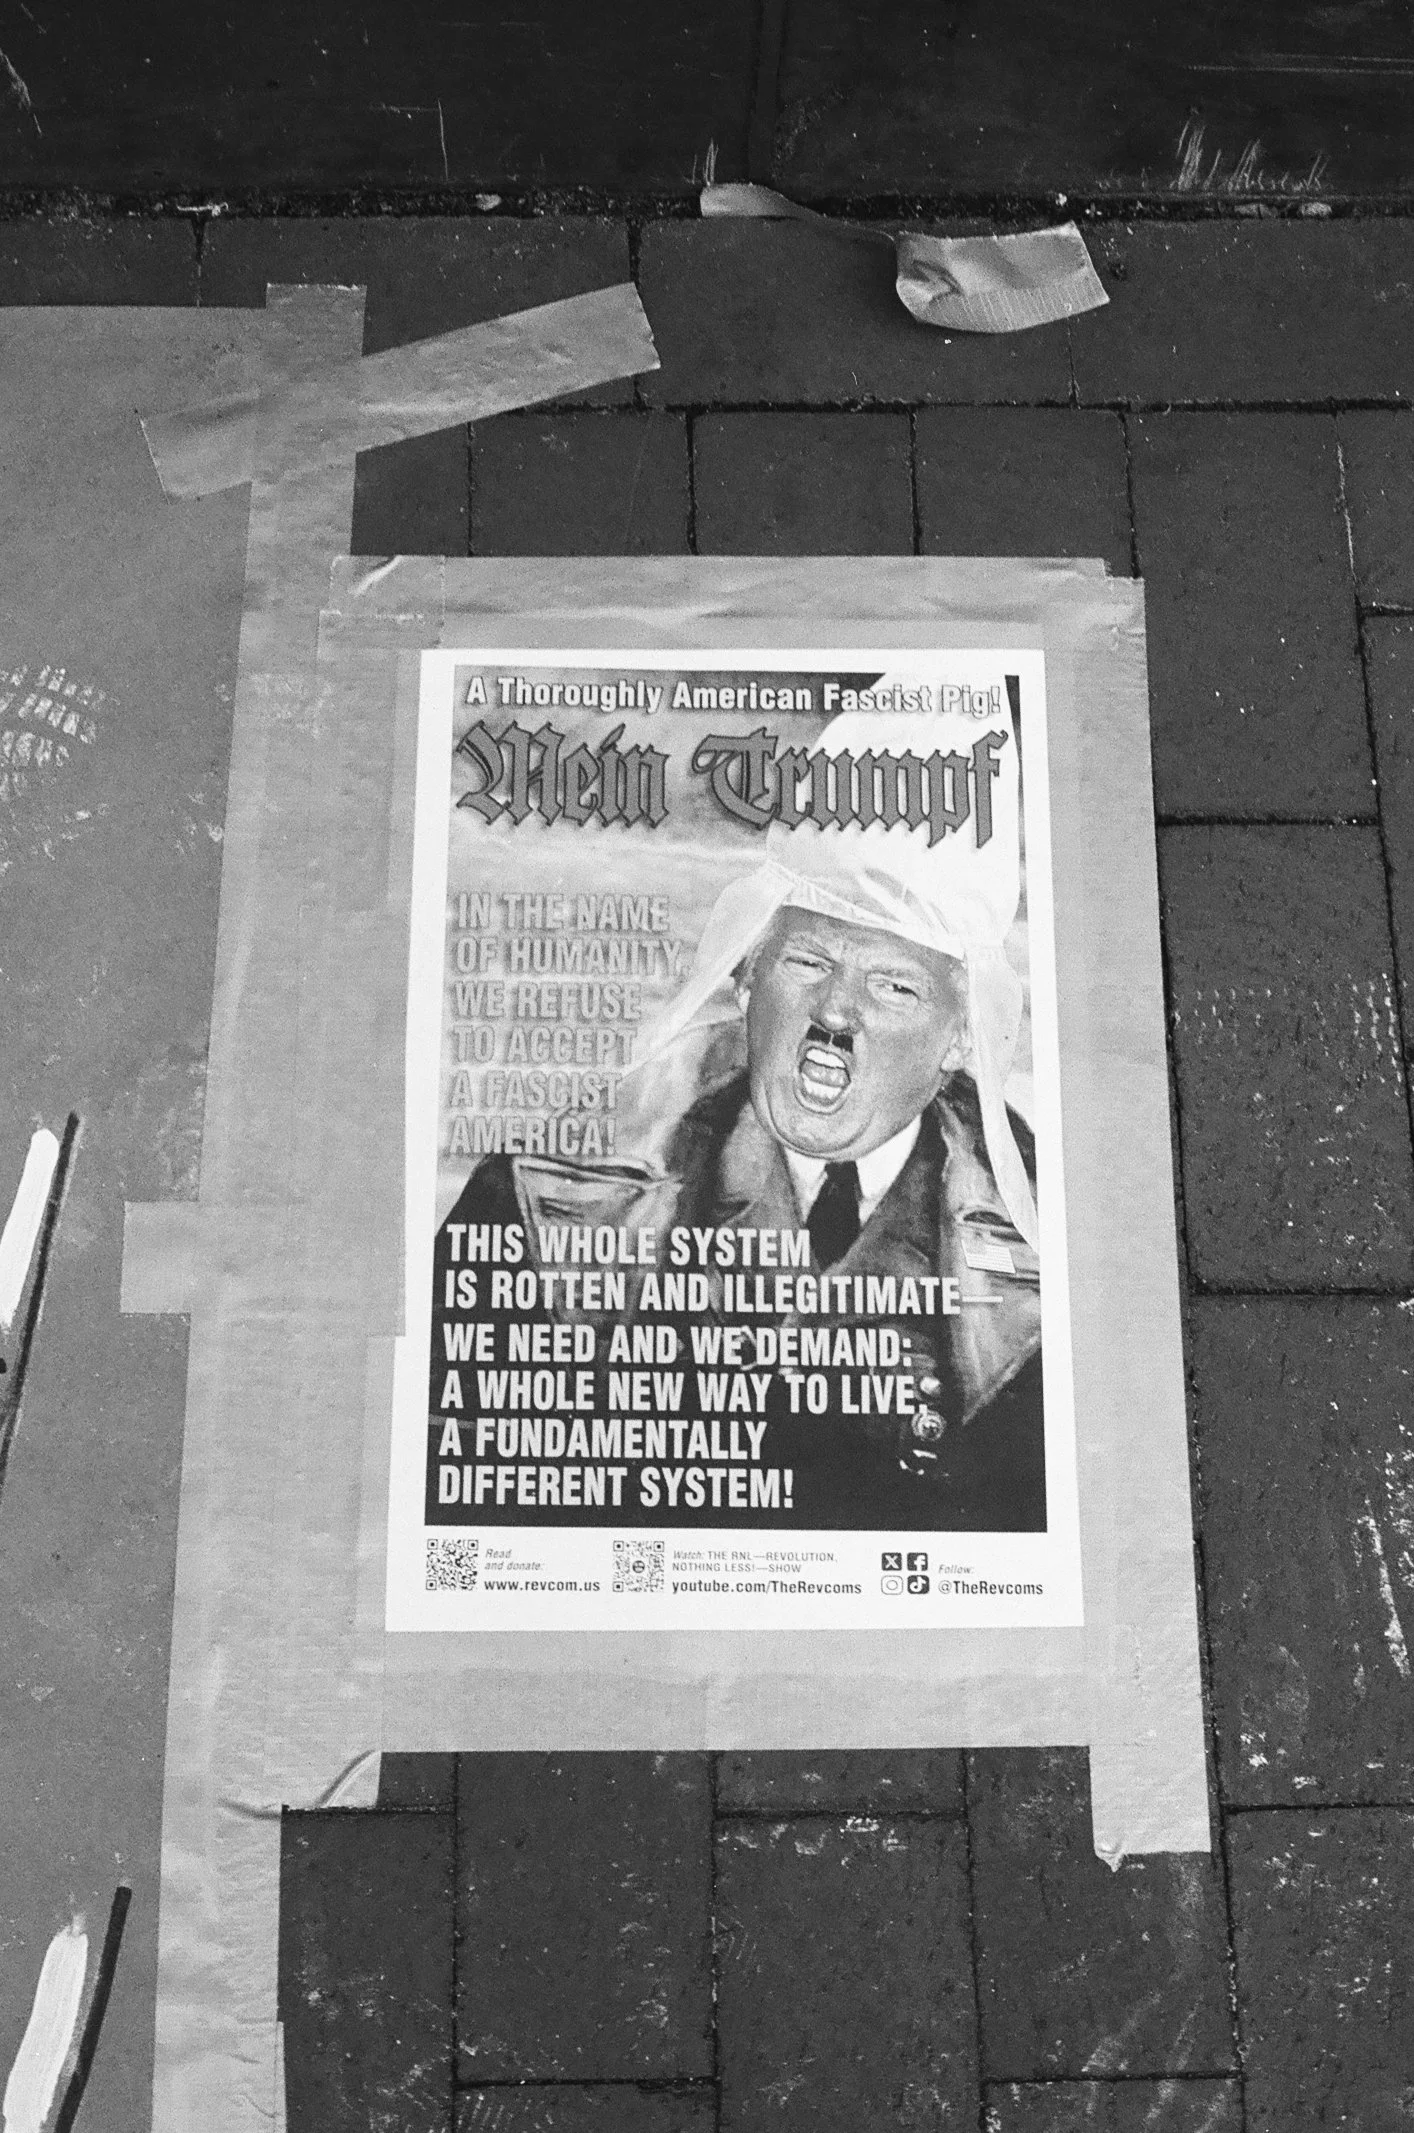 A Thoroughly American Fascist Pig!
Mein Trumpf
IN THE NAME
OF HUMANITY,
WE REFUSE
TO ACCEPT
A FASCIST
AMERICA!
THIS WHOLE SYSTEM
IS ROTTEN AND ILLEGITIMATE—
WE NEED AND WE DEMAND:
A WHOLE NEW WAY TO LIVE,
A FUNDAMENTALLY
DIFFERENT SYSTEM!
Read
and donate:
www.revcom.us
Watch: THE RNL—REVOLUTION,
NOTHING LESS!—SHOW
youtube.com/TheRevcoms
Follow:
@TheRevcoms